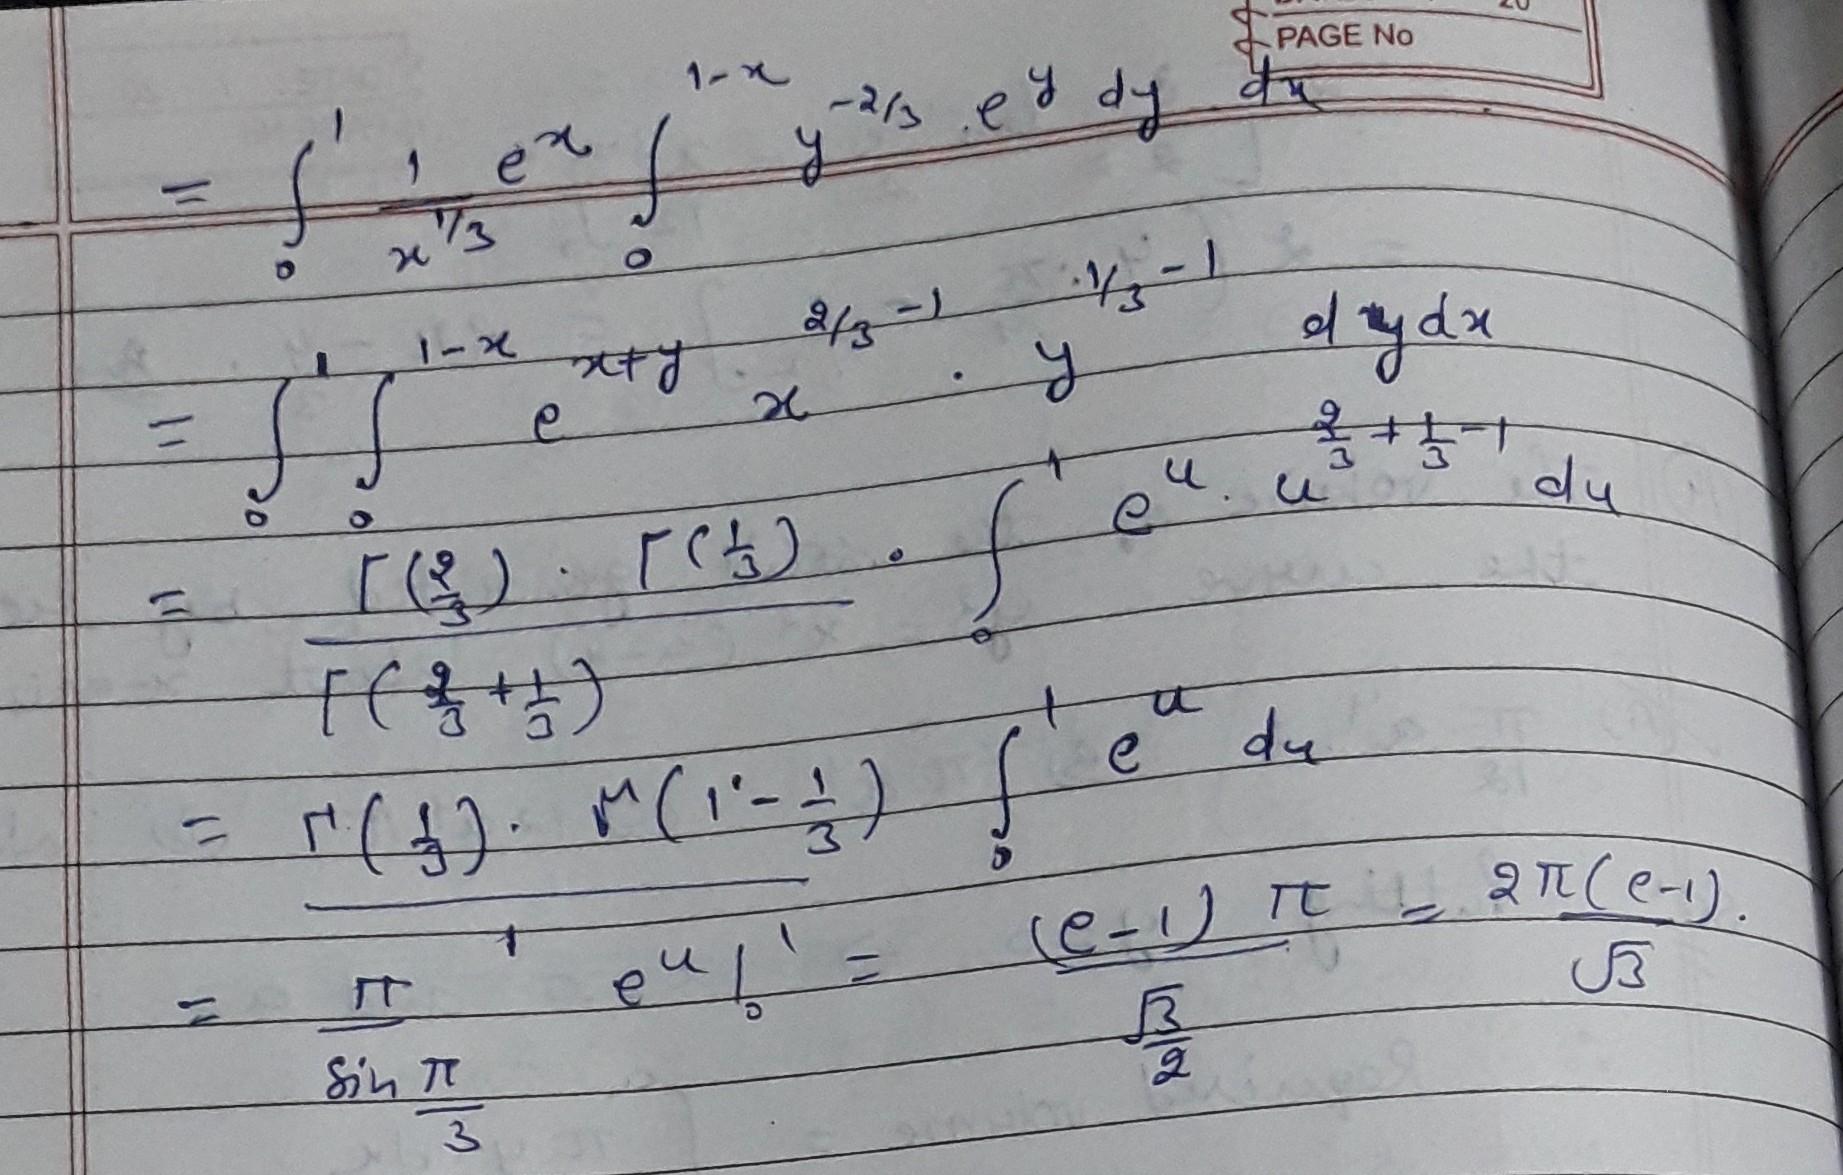 20
PAGE No
= ∫₀¹ 1/x^(1/3) e^x ∫₀^(1-x) y^(-2/3) . e^y dy dx
= ∫₀¹ ∫₀^(1-x) e^(x+y) x^(2/3 - 1) . y^(1/3 - 1) dy dx
= Γ(2/3) . Γ(1/3) / Γ(2/3 + 1/3) . ∫₀¹ e^u . u^(2/3 + 1/3 - 1) du
= Γ(1/3) . Γ(1 - 1/3) / 1 ∫₀¹ e^u du
= π / sin π/3 e^u |₀¹ = (e-1) π / (√3/2) = 2π(e-1) / √3 .